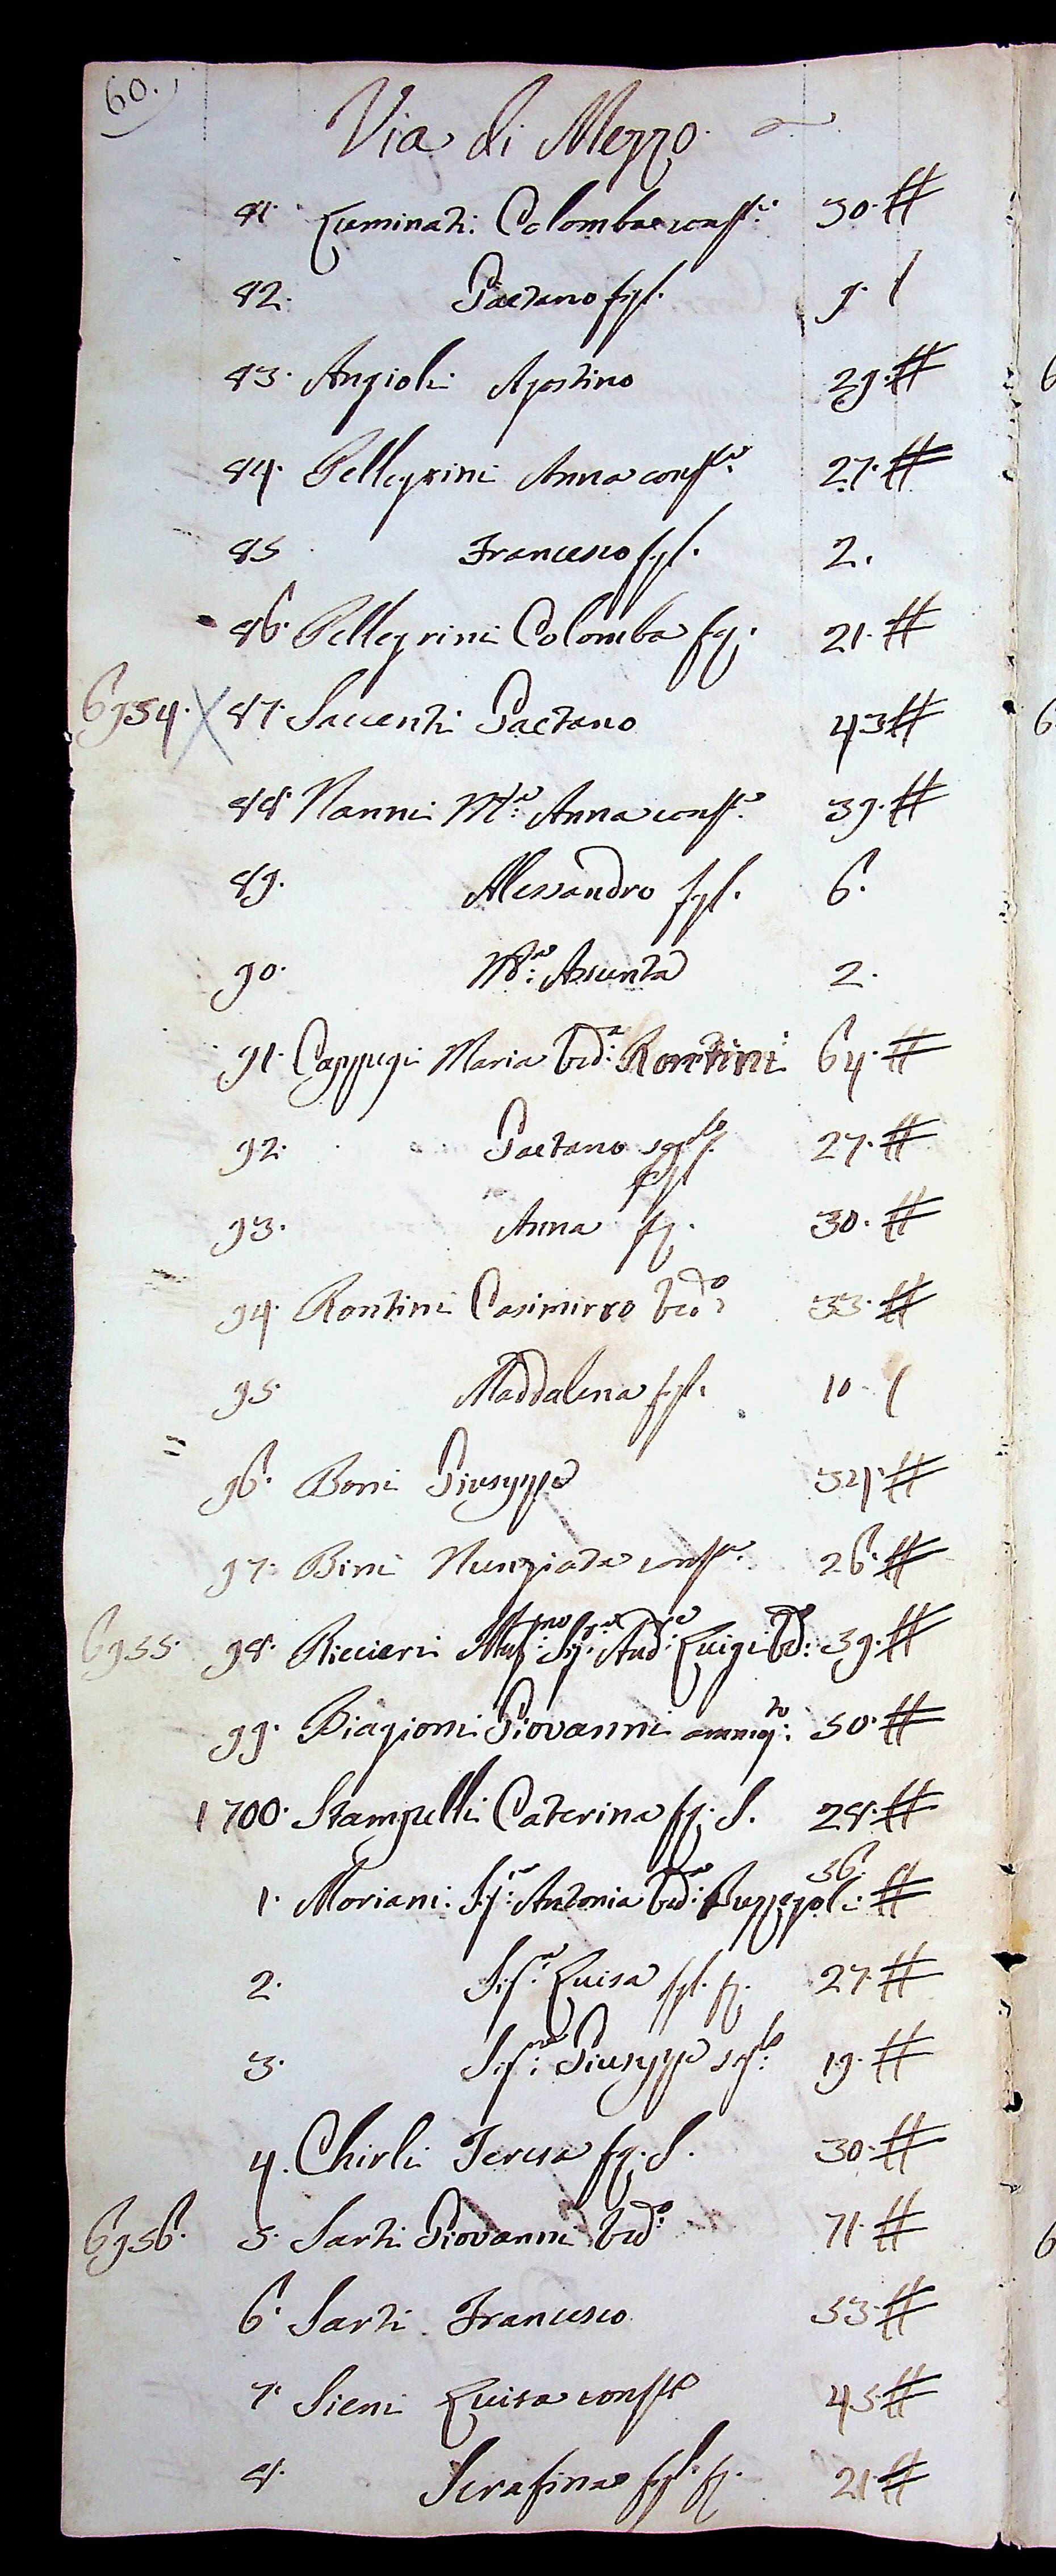 60.
Via di Mezzo.
81. Luminati Colomba conste: 30. #
82. Gaetano figl. 9. /
83. Angioli Agostino 29. #
84. Pellegrini Anna conste: 27. #
85. Francesco figl. 2.
86. Pellegrini Colomba fg: 21. #
6954. X 87. Saccenti Gaetano 43 #
88. Nanni Ma: Anna conste: 39. #
89. Alessandro figl. 6.
90. Ma: Assunta 2.
91. Cappugi Maria veda: Rontini 64. #
92. Gaetano figl. 27. #
93. Anna fg. 30. #
94. Rontini Casimirro vedo: 33. #
95. Maddalena figl. 10. /
96. Boni Giuseppe 34. #
97. Bini Nunziata conste: 26. #
6955. 98. Riccieri Luigi 39. #
99. Biagioni Giovanni ammogto: 50. #
1700. Stampelli Caterina fg. S. 28. #
36.
1. Moriani Siga: Antonia veda: #
2. Siga: Luisa figl. fg. 27. #
3. Sigre: Giuseppe 19. #
4. Chirli Teresa fg. S. 30. #
6956. 5. Sarti Giovanni vedo: 71. #
6. Sarti Francesco 33. #
7. Sieni Luisa conste 45. #
8. Serafina figl. fg. 21. #